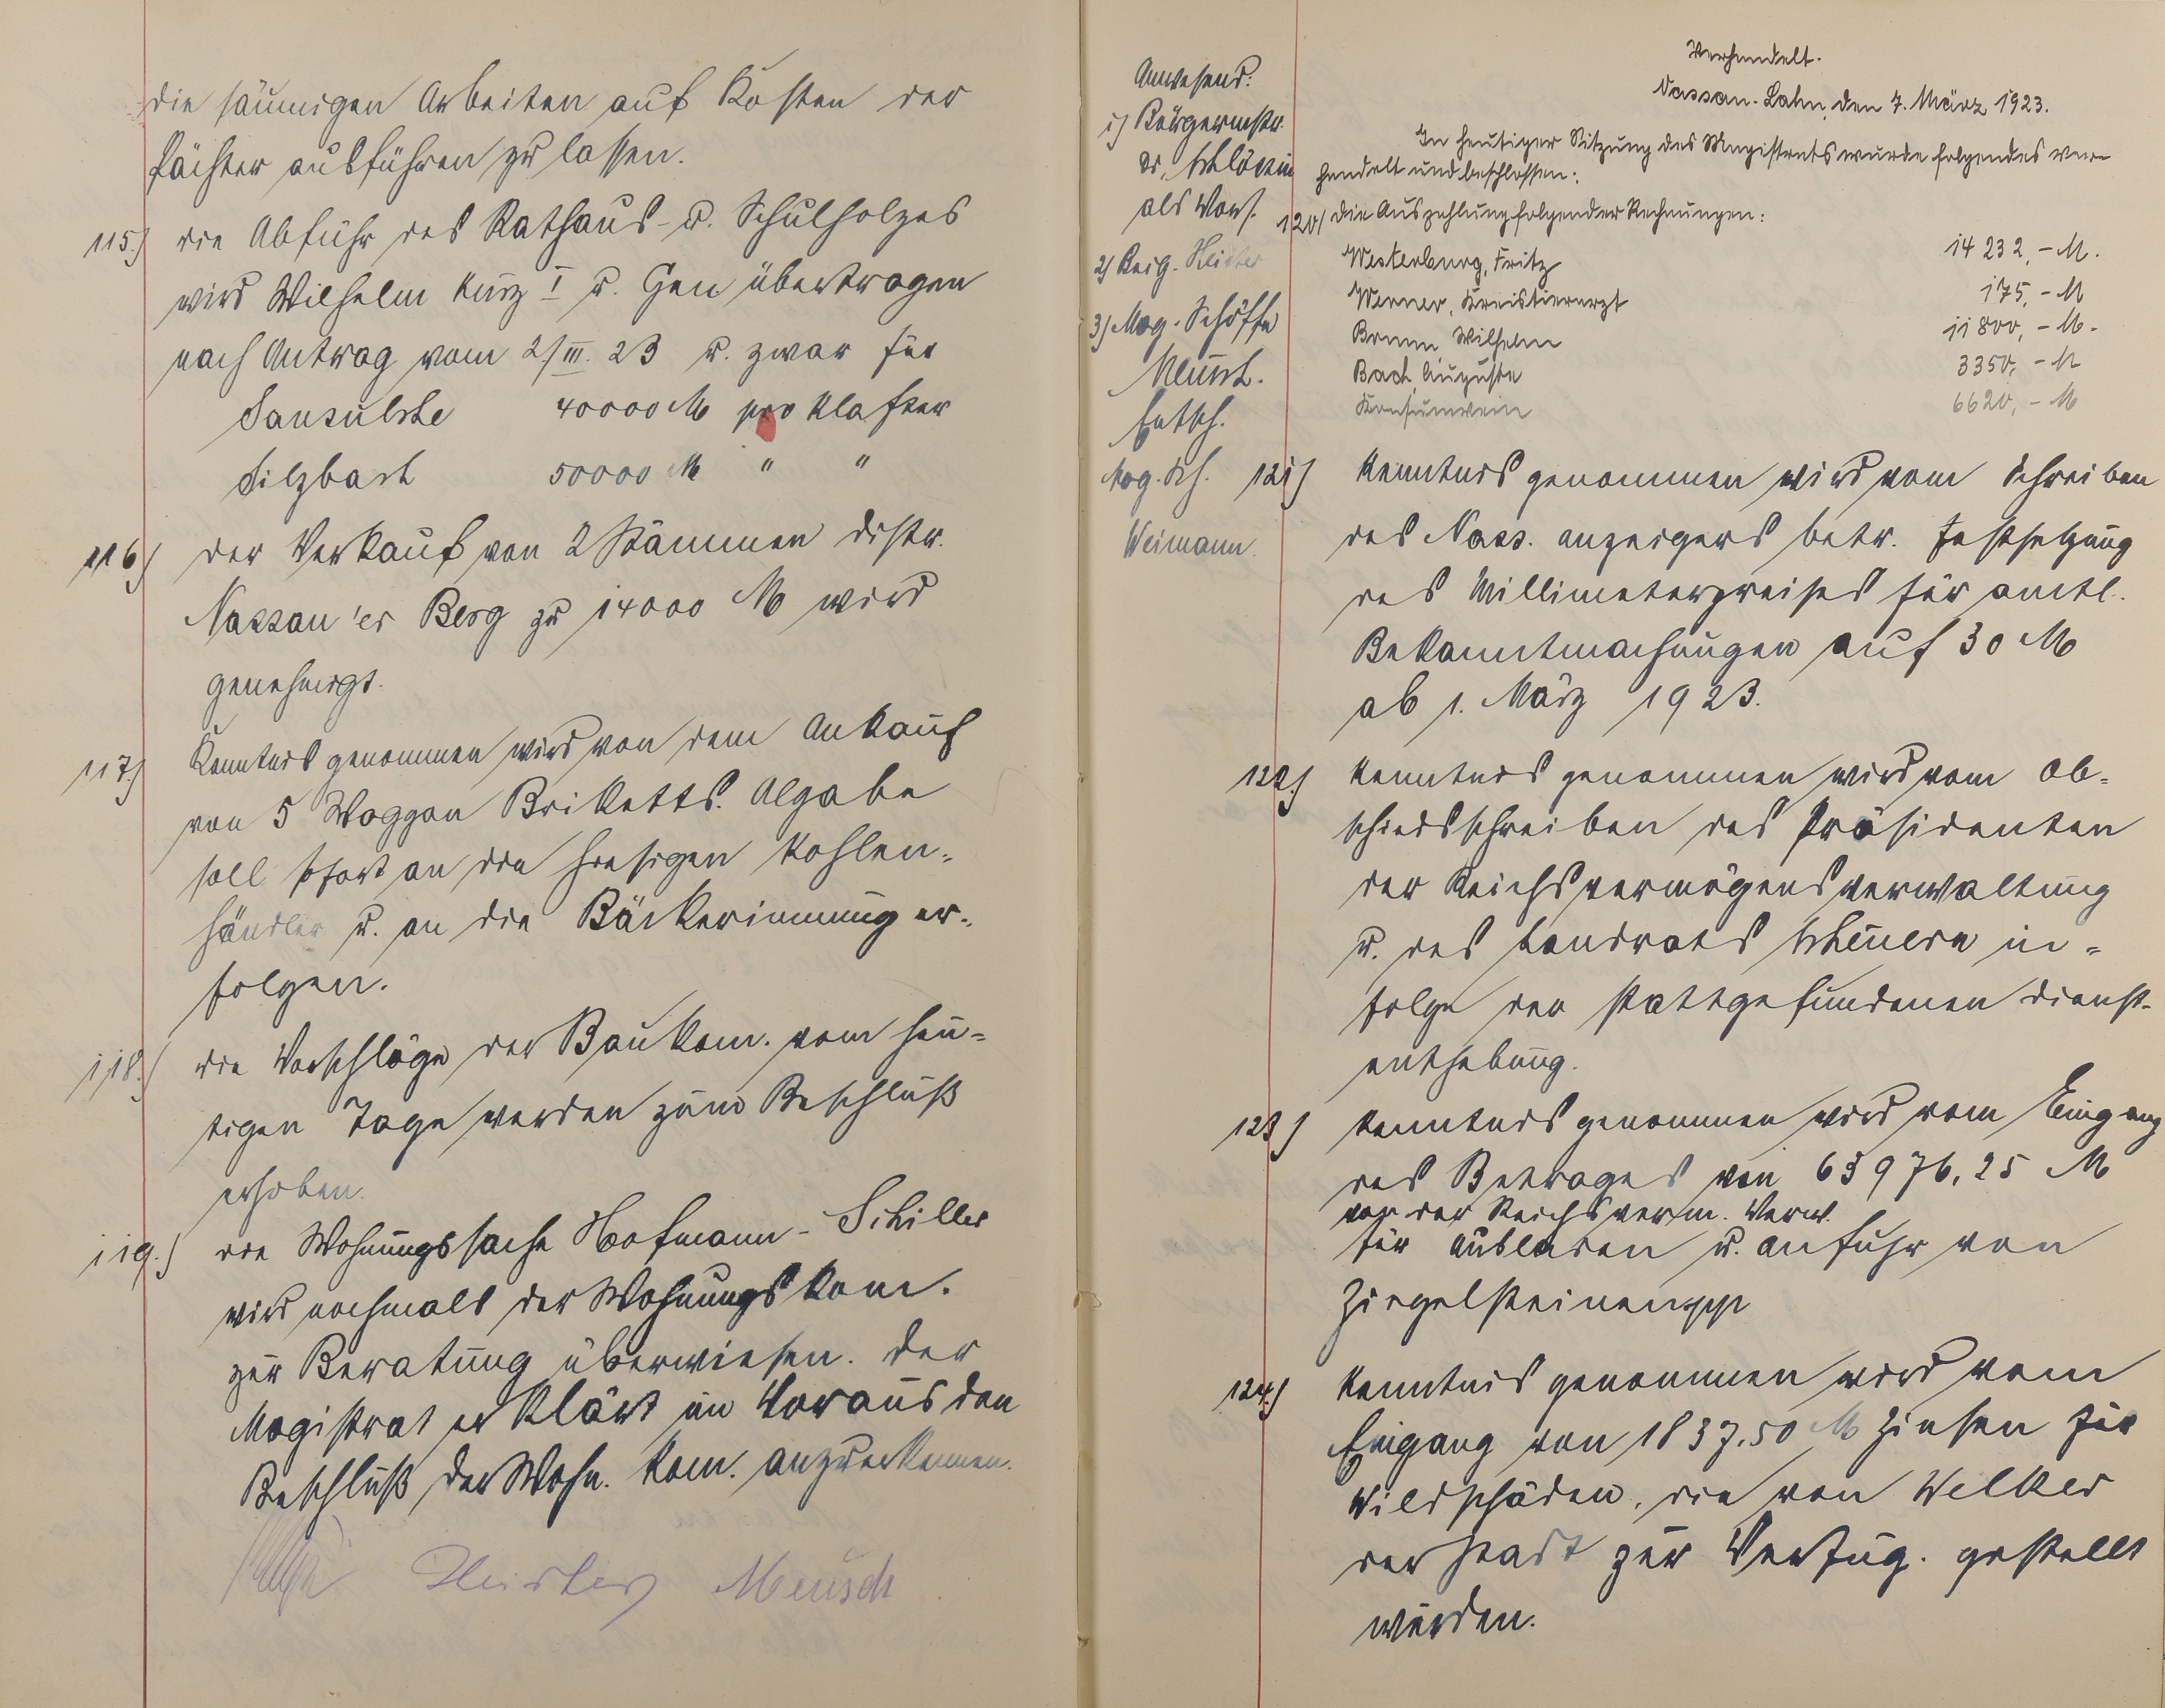 die säumigen Arbeiten auf Kosten der
Pächter ausführen zu lassen.
115.) die Abfuhr des Rathaus- u. Schulholzes
wird Wilhelm Kurz I u. Gen übertragen
nach Antrag vom 2/III. 23 u. zwar für
40000 M pro Klafter
50000 M " "
116) der Verkauf von 2 Stämmen Distr.
Nassau'er Berg zu 14000 M wird
genehmigt.
117.) Kenntnis genommen wird von dem Ankauf
von 5 Waggon Briketts. Abgabe
soll sofort an die hiesigen Kohlen-
händler u. an die Bäckerinnung er-
folgen.
118.) die Vorschläge der Baukom. vom heu-
tigen Tage werden zum Beschluß
erhoben.
119.) die Wohnungssache Hofmann-Schiller
wird nochmals der Wohnungskom.
zur Beratung überwiesen. Der
Magistrat erklärt im Voraus den
Beschluß der Wohn. Kom. anzuerkennen.
Meusch
Anwesend:
1) Bürgermstr.
als Vors.
2) Beig.
3) Mag. Schöffe
Meusch.
Entsch.
Mag. Sch.
Weimann
Verhandelt.
Nassau-Lahn, den 7. März 1923.
In heutiger Sitzung des Magistrats wurde folgendes ver-
handelt und beschlossen:
120/ die Auszahlung folgender Rechnungen:
Westerburg, Fritz 14 232,- M.
Werner, Kreistierarzt 175,- M
Bruun Wilhelm 11 800,- M.
Bach, Auguste 3350,- M
Konsumverein 6620,- M
121) Kenntnis genommen wird vom Schreiben
des Nass. Anzeigers betr. Festsetzung
des Millimeterpreises für amtl.
Bekanntmachungen auf 30 M
ab 1. März 1923.
122.) Kenntnis genommen wird vom Ab-
schiedsschreiben des Präsidenten
der Reichsvermögensverwaltung
u. des Landrats Scheuern in-
folge der stattgefundenen Dienst-
enthebung.
123) Kenntnis genommen wird vom Eingang
des Betrages von 63976,25 M
von der Reichsverm. Verw.
für Ausladen u. Anfuhr von
Ziegelsteinen pp
124.) Kenntnis genommen wird vom
Eingang von 1837.50 M Zinsen für
Wildschäden, die von Welker
der Stadt zur Verfüg. gestellt
wurden.